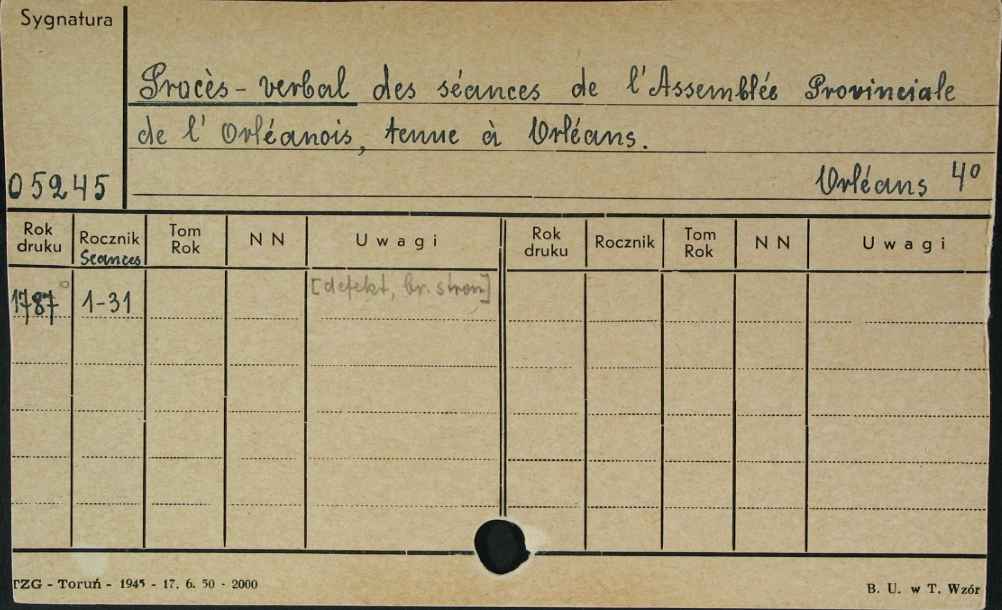 Sygnatura
Procès-verbal des séances de l'Assemblée Provinciale
de l'Orléanois, tenue à Orléans.
05245
Orléans 4º
Rok druku Rocznik Séances Tom Rok N N Uwagi Rok druku Rocznik Tom Rok N N Uwagi
1787 1-31 [defekt, br. stron]
TZG - Toruń - 1945 - 17. 6. 50 - 2000
B. U. w T. Wzór